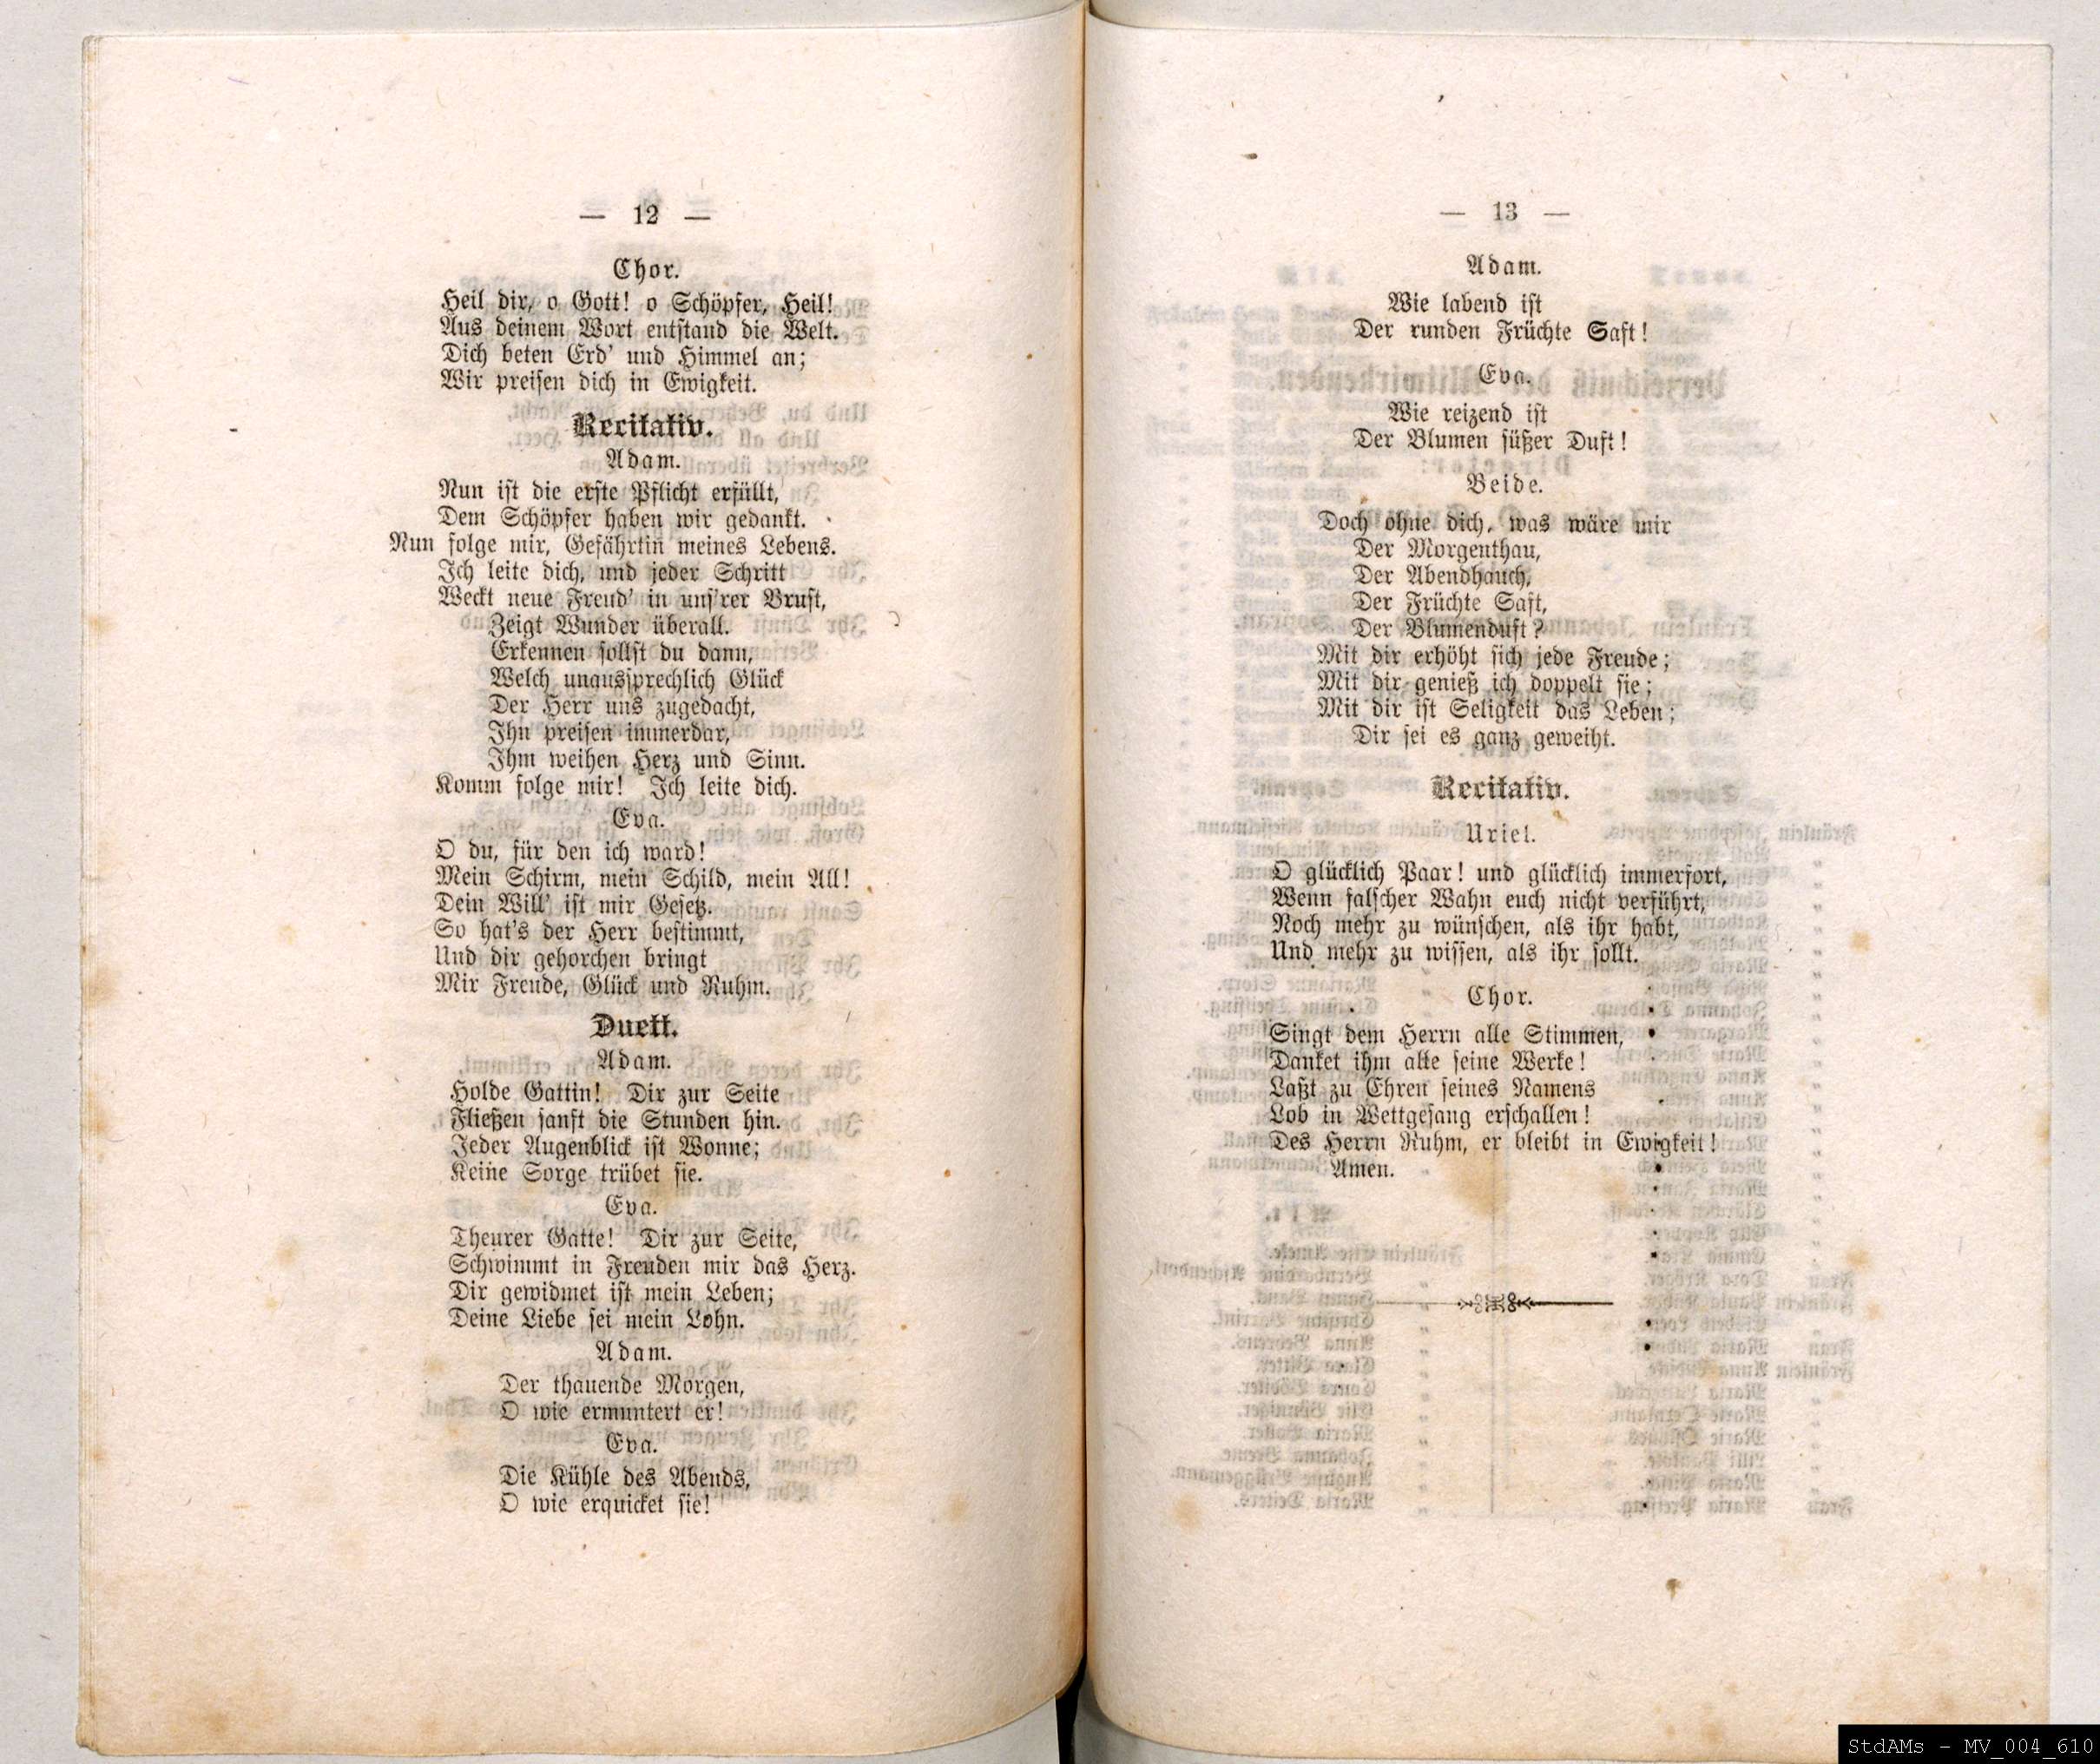 — 12 —
Chor.
Heil dir, o Gott! o Schöpfer, Heil!
Aus deinem Wort entstand die Welt.
Dich beten Erd' und Himmel an;
Wir preisen dich in Ewigkeit.
Recitativ.
Adam.
Nun ist die erste Pflicht erfüllt,
Dem Schöpfer haben wir gedankt.
Nun folge mir, Gefährtin meines Lebens.
Ich leite dich, und jeder Schritt
Weckt neue Freud' in uns'rer Brust,
Zeigt Wunder überall.
Erkennen sollst du dann,
Welch unaussprechlich Glück
Der Herr uns zugedacht,
Ihn preisen immerdar,
Ihm weihen Herz und Sinn.
Komm folge mir! Ich leite dich.
Eva.
O du, für den ich ward!
Mein Schirm, mein Schild, mein All!
Dein Will' ist mir Gesetz.
So hat's der Herr bestimmt,
Und dir gehorchen bringt
Mir Freude, Glück und Ruhm.
Duett.
Adam.
Holde Gattin! Dir zur Seite
Fließen sanft die Stunden hin.
Jeder Augenblick ist Wonne;
Keine Sorge trübet sie.
Eva.
Theurer Gatte! Dir zur Seite,
Schwimmt in Freuden mir das Herz.
Dir gewidmet ist mein Leben;
Deine Liebe sei mein Lohn.
Adam.
Der thauende Morgen,
O wie ermuntert er!
Eva.
Die Kühle des Abends,
O wie erquicket sie!
— 13 —
Adam.
Wie labend ist
Der runden Früchte Saft!
Eva.
Wie reizend ist
Der Blumen süßer Duft!
Beide.
Doch ohne dich, was wäre mir
Der Morgenthau,
Der Abendhauch,
Der Früchte Saft,
Der Blumenduft?
Mit dir erhöht sich jede Freude;
Mit dir genieß ich doppelt sie;
Mit dir ist Seligkeit das Leben;
Dir sei es ganz geweiht.
Recitativ.
Uriel.
O glücklich Paar! und glücklich immerfort,
Wenn falscher Wahn euch nicht verführt,
Noch mehr zu wünschen, als ihr habt,
Und mehr zu wissen, als ihr sollt.
Chor.
Singt dem Herrn alle Stimmen,
Danket ihm alle seine Werke!
Laßt zu Ehren seines Namens
Lob in Wettgesang erschallen!
Des Herrn Ruhm, er bleibt in Ewigkeit!
Amen.
StdAMs - MV_004_610